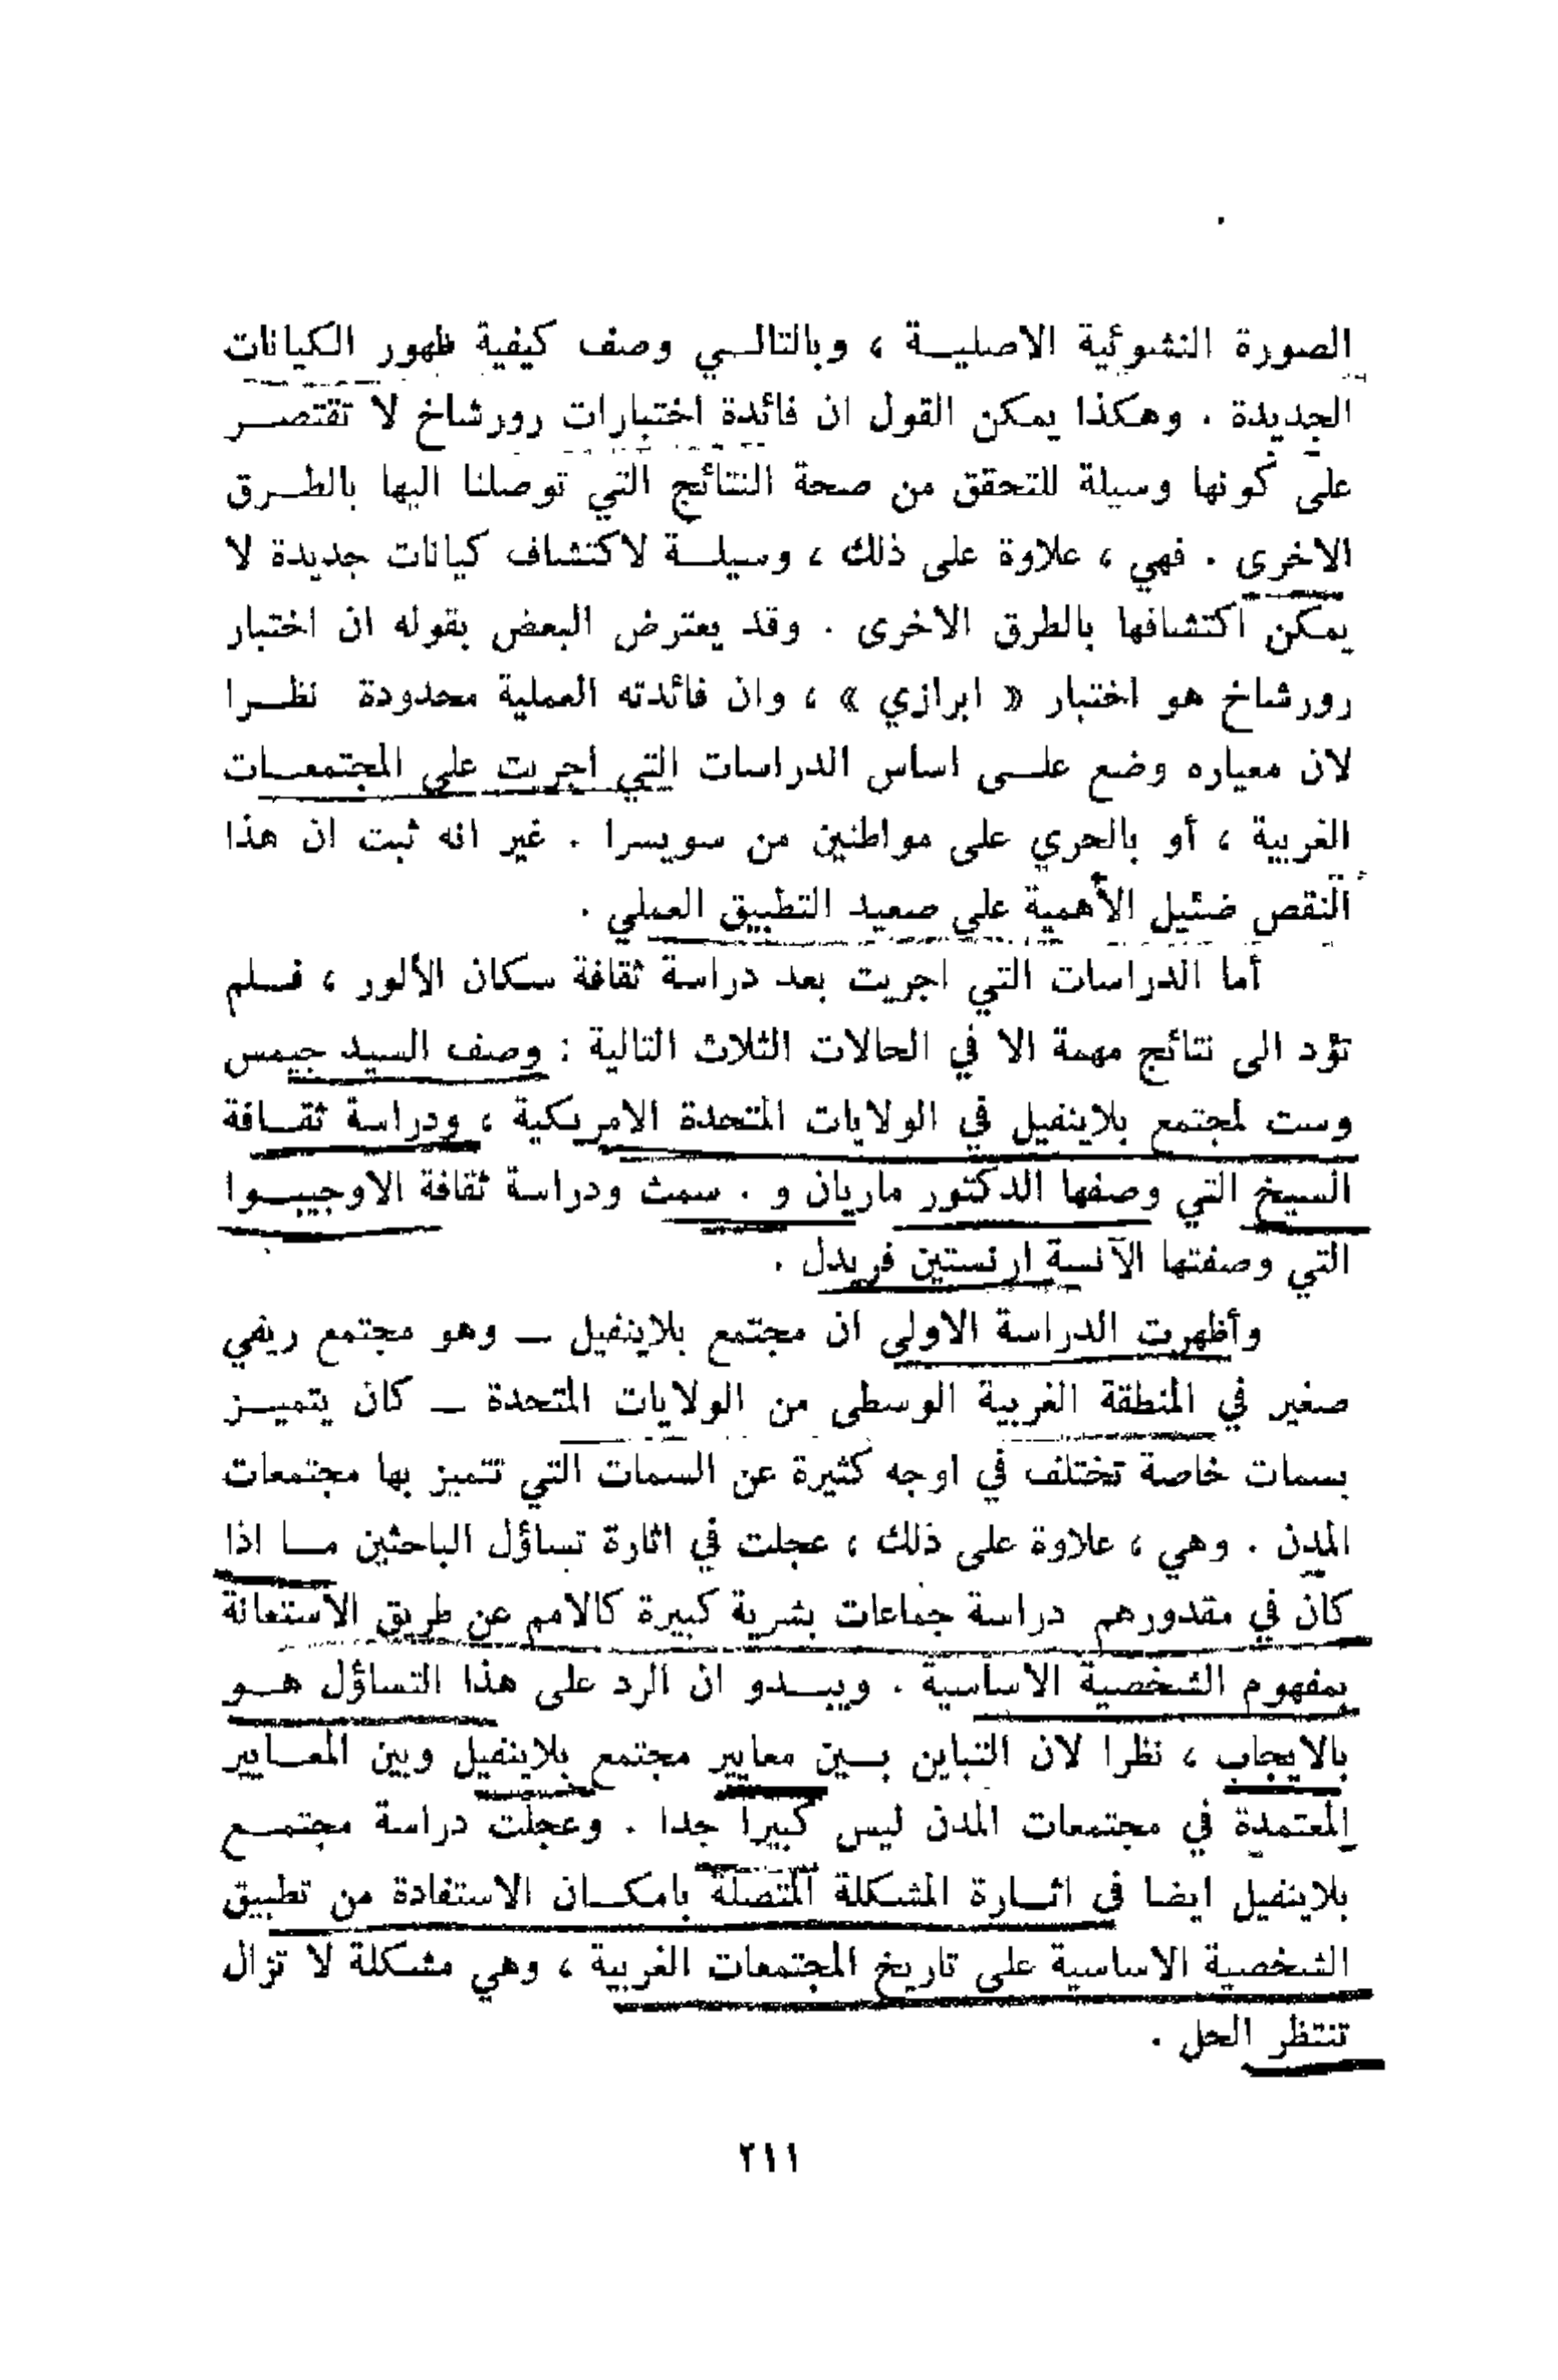 الصورة النشوئية الاصلية ، وبالتالي وصف كيفية ظهور الكيانات
الجديدة . وهكذا يمكن القول ان فائدة اختبارات رورشاخ لا تقتصر
على كونها وسيلة للتحقق من صحة النتائج التي توصلنا اليها بالطرق
الاخرى . فهي ، علاوة على ذلك ، وسيلة لاكتشاف كيانات جديدة لا
يمكن اكتشافها بالطرق الاخرى . وقد يعترض البعض بقوله ان اختبار
رورشاخ هو اختبار « ابرازي » ، وان فائدته العملية محدودة نظرا
لان معياره وضع على اساس الدراسات التي اجريت على المجتمعات
الغربية ، أو بالحري على مواطنين من سويسرا . غير انه ثبت ان هذا
النقص ضئيل الأهمية على صعيد التطبيق العملي .
أما الدراسات التي اجريت بعد دراسة ثقافة سكان الألور ، فلم
تؤد الى نتائج مهمة الا في الحالات الثلاث التالية : وصف السيد جيمس
وست لمجتمع بلاينفيل في الولايات المتحدة الامريكية ، ودراسة ثقافة
السيخ التي وصفها الدكتور ماريان و . سمث ودراسة ثقافة الاوجيبوا
التي وصفتها الآنسة ارنستين فريدل .
وأظهرت الدراسة الاولى ان مجتمع بلاينفيل – وهو مجتمع ريفي
صغير في المنطقة الغربية الوسطى من الولايات المتحدة – كان يتميز
بسمات خاصة تختلف في اوجه كثيرة عن السمات التي تتميز بها مجتمعات
المدن . وهي ، علاوة على ذلك ، عجلت في اثارة تساؤل الباحثين ما اذا
كان في مقدورهم دراسة جماعات بشرية كبيرة كالامم عن طريق الاستعانة
بمفهوم الشخصية الاساسية . ويبدو ان الرد على هذا التساؤل هو
بالايجاب ، نظرا لان التباين بين معايير مجتمع بلاينفيل وبين المعايير
المعتمدة في مجتمعات المدن ليس كبيرا جدا . وعجلت دراسة مجتمع
بلاينفيل ايضا في اثارة المشكلة المتصلة بامكان الاستفادة من تطبيق
الشخصية الاساسية على تاريخ المجتمعات الغربية ، وهي مشكلة لا تزال
تنتظر الحل .
٢١١